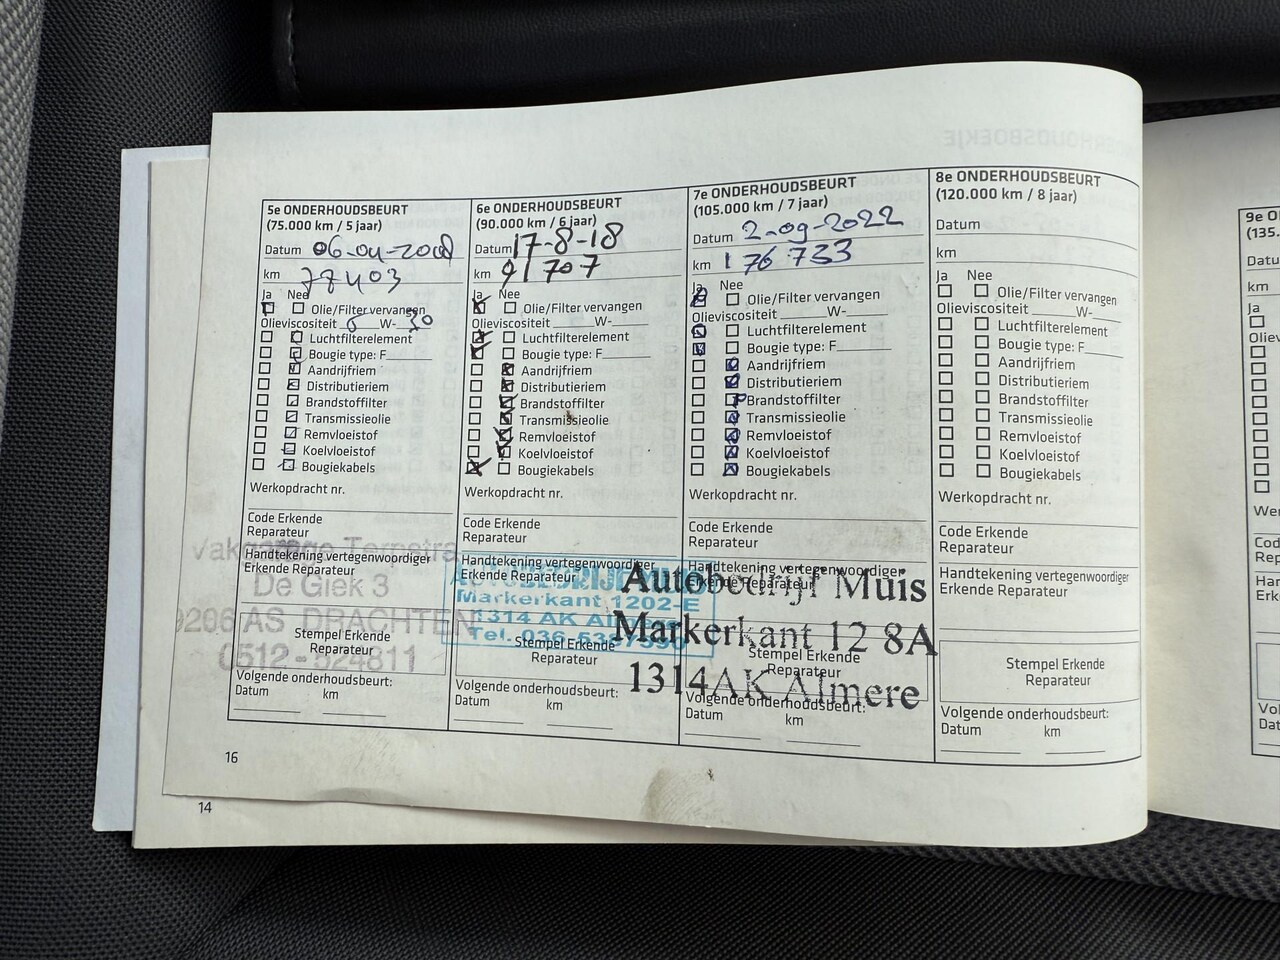 5e ONDERHOUDSBEURT
(75.000 km / 5 jaar)
Datum 06-04-2008
km 78403
Ja Nee
Olie/Filter vervangen
Olieviscositeit 5 W- 30
Luchtfilterelement
Bougie type: F
Aandrijfriem
Distributieriem
Brandstoffilter
Transmissieolie
Remvloeistof
Koelvloeistof
Bougiekabels
Werkopdracht nr.
Code Erkende
Reparateur
Handtekening vertegenwoordiger
Erkende Reparateur
De Giek 3
9206 AS DRACHTEN
0512 - 524811
Stempel Erkende
Reparateur
Volgende onderhoudsbeurt:
Datum km
6e ONDERHOUDSBEURT
(90.000 km / 6 jaar)
Datum 17-8-18
km 91707
Ja Nee
Olie/Filter vervangen
Olieviscositeit W-
Luchtfilterelement
Bougie type: F
Aandrijfriem
Distributieriem
Brandstoffilter
Transmissieolie
Remvloeistof
Koelvloeistof
Bougiekabels
Werkopdracht nr.
Code Erkende
Reparateur
Handtekening vertegenwoordiger
Erkende Reparateur
Markerkant 1202-E
1314 AK
Tel. 036
Stempel Erkende
Reparateur
Volgende onderhoudsbeurt:
Datum km
7e ONDERHOUDSBEURT
(105.000 km / 7 jaar)
Datum 2-09-2022
km 176.733
Ja Nee
Olie/Filter vervangen
Olieviscositeit W-
Luchtfilterelement
Bougie type: F
Aandrijfriem
Distributieriem
Brandstoffilter
Transmissieolie
Remvloeistof
Koelvloeistof
Bougiekabels
Werkopdracht nr.
Code Erkende
Reparateur
Handtekening vertegenwoordiger
Erkende Reparateur
Autobedrijf Muis
Markerkant 12 8A
1314AK Almere
Stempel Erkende
Reparateur
Volgende onderhoudsbeurt:
Datum km
8e ONDERHOUDSBEURT
(120.000 km / 8 jaar)
Datum
km
Ja Nee
Olie/Filter vervangen
Olieviscositeit W-
Luchtfilterelement
Bougie type: F
Aandrijfriem
Distributieriem
Brandstoffilter
Transmissieolie
Remvloeistof
Koelvloeistof
Bougiekabels
Werkopdracht nr.
Code Erkende
Reparateur
Handtekening vertegenwoordiger
Erkende Reparateur
Stempel Erkende
Reparateur
Volgende onderhoudsbeurt:
Datum km
16
14
9e
(135.
km
Ja